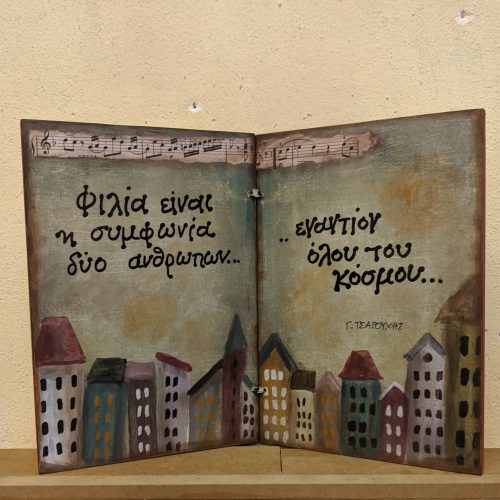 Φιλία είναι
η συμφωνία
δύο ανθρωπων...
.. εναντίον
όλου του
κόσμου...
Γ. ΤΣΑΡΟΥΧΗΣ